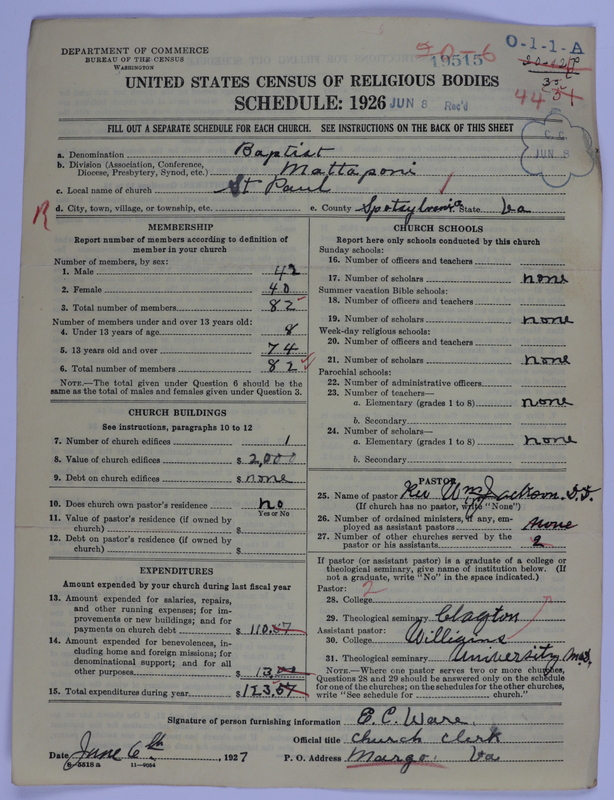 DEPARTMENT OF COMMERCE
BUREAU OF THE CENSUS
WASHINGTON
19515
O-1-1-A
UNITED STATES CENSUS OF RELIGIOUS BODIES
SCHEDULE: 1926
JUN 8 Rec'd
FILL OUT A SEPARATE SCHEDULE FOR EACH CHURCH. SEE INSTRUCTIONS ON THE BACK OF THIS SHEET
JUN 8
a. Denomination Baptist
b. Division (Association, Conference, Diocese, Presbytery, Synod, etc.) Mattaponi
c. Local name of church St Paul
d. City, town, village, or township, etc.
e. County Spotsylvania State Va
MEMBERSHIP
Report number of members according to definition of
member in your church
Number of members, by sex:
1. Male 42
2. Female 40
3. Total number of members 82
Number of members under and over 13 years old:
4. Under 13 years of age 8
5. 13 years old and over 74
6. Total number of members 82
NOTE.—The total given under Question 6 should be
the same as the total of males and females given under Question 3.
CHURCH BUILDINGS
See instructions, paragraphs 10 to 12
7. Number of church edifices 1
8. Value of church edifices $ 2,000
9. Debt on church edifices $ none
10. Does church own pastor's residence no
Yes or No
11. Value of pastor's residence (if owned by
church) $
12. Debt on pastor's residence (if owned by
church) $
EXPENDITURES
Amount expended by your church during last fiscal year
13. Amount expended for salaries, repairs,
and other running expenses; for im-
provements or new buildings; and for
payments on church debt $ 110.57
14. Amount expended for benevolences, in-
cluding home and foreign missions; for
denominational support; and for all
other purposes 13.00
15. Total expenditures during year $ 123.57
CHURCH SCHOOLS
Report here only schools conducted by this church
Sunday schools:
16. Number of officers and teachers
17. Number of scholars none
Summer vacation Bible schools:
18. Number of officers and teachers
19. Number of scholars none
Week-day religious schools:
20. Number of officers and teachers
21. Number of scholars none
Parochial schools:
22. Number of administrative officers
23. Number of teachers—
a. Elementary (grades 1 to 8) none
b. Secondary
24. Number of scholars—
a. Elementary (grades 1 to 8) none
b. Secondary
PASTOR
25. Name of pastor Rev Wm Jackson
(If church has no pastor, write "None")
26. Number of ordained ministers, if any, em-
ployed as assistant pastors none
27. Number of other churches served by the
pastor or his assistants 2
If pastor (or assistant pastor) is a graduate of a college or
theological seminary, give name of institution below. (If
not a graduate, write "No" in the space indicated.)
Pastor: 2
28. College
29. Theological seminary Clayton
Assistant pastor:
30. College Williams
31. Theological seminary University
NOTE.—Where one pastor serves two or more churches,
Questions 28 and 29 should be answered only on the schedule
for one of the churches; on the schedules for the other churches,
write "See schedule for church."
Signature of person furnishing information E. C. Ware
Official title Church Clerk
Date June 6th, 1927 P. O. Address Margo Va
8-5518 a 11-9064